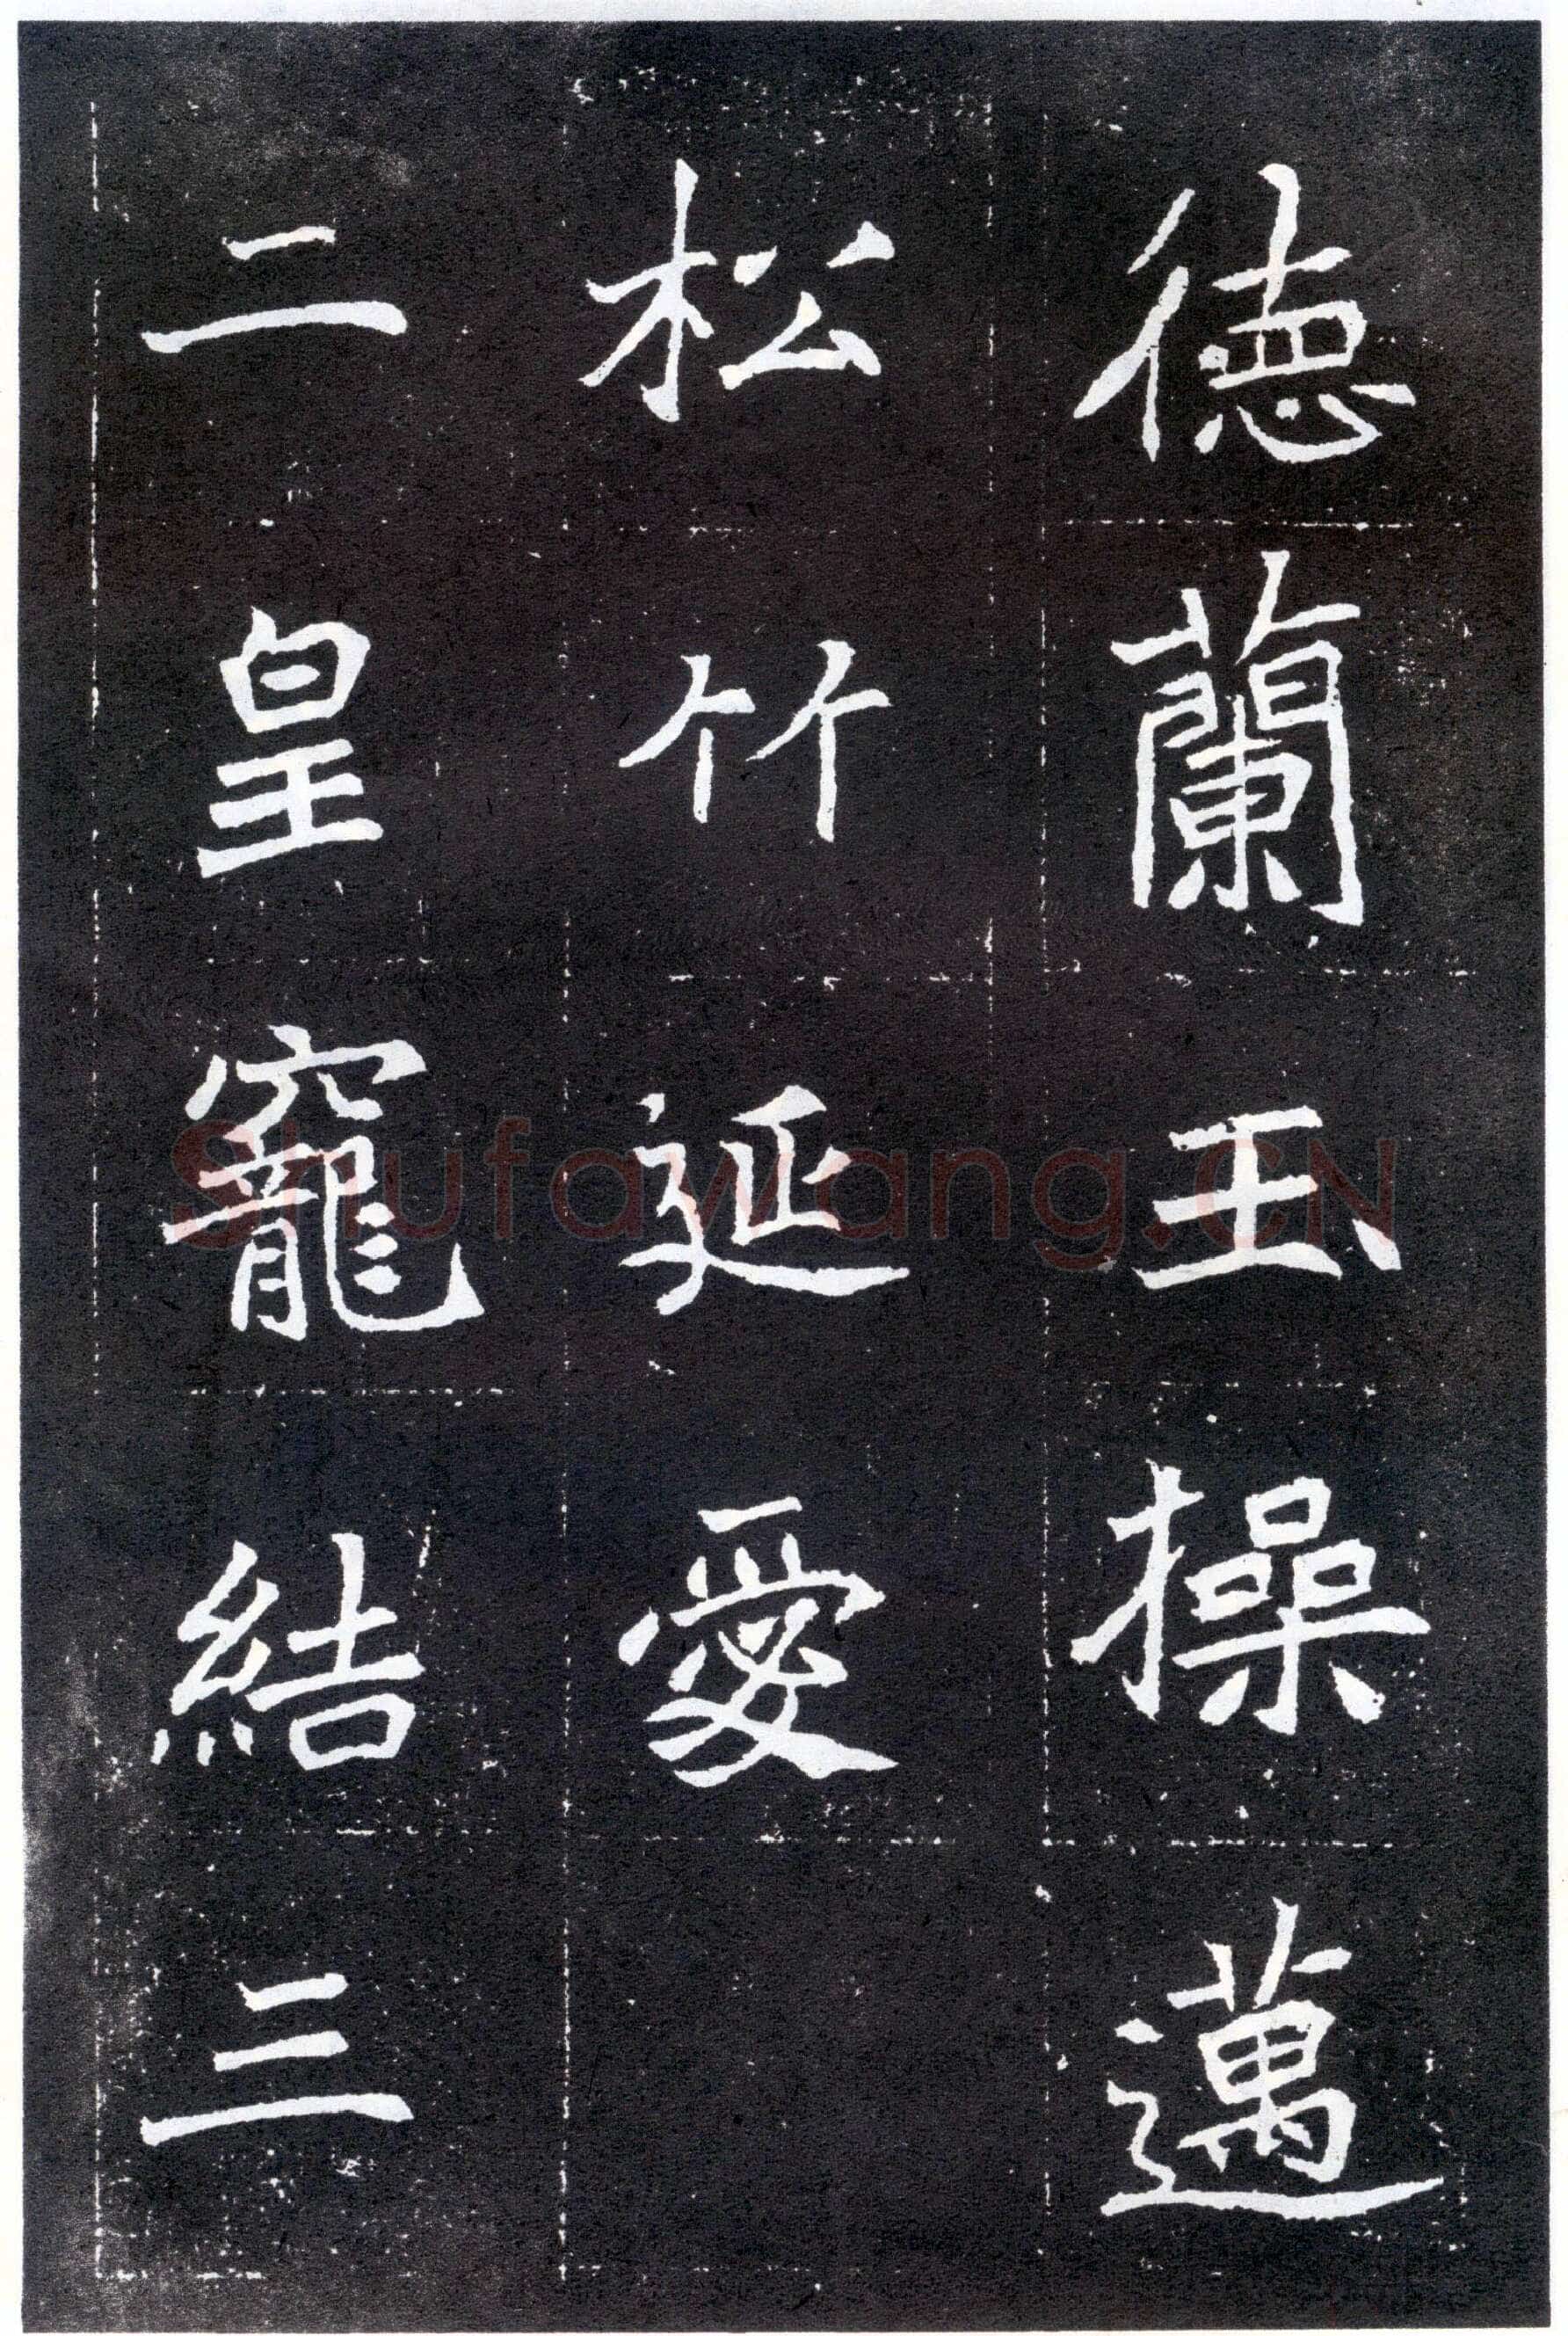 徳蘭玉操邁
松竹延愛
二皇寵結三
Shufawang.CN